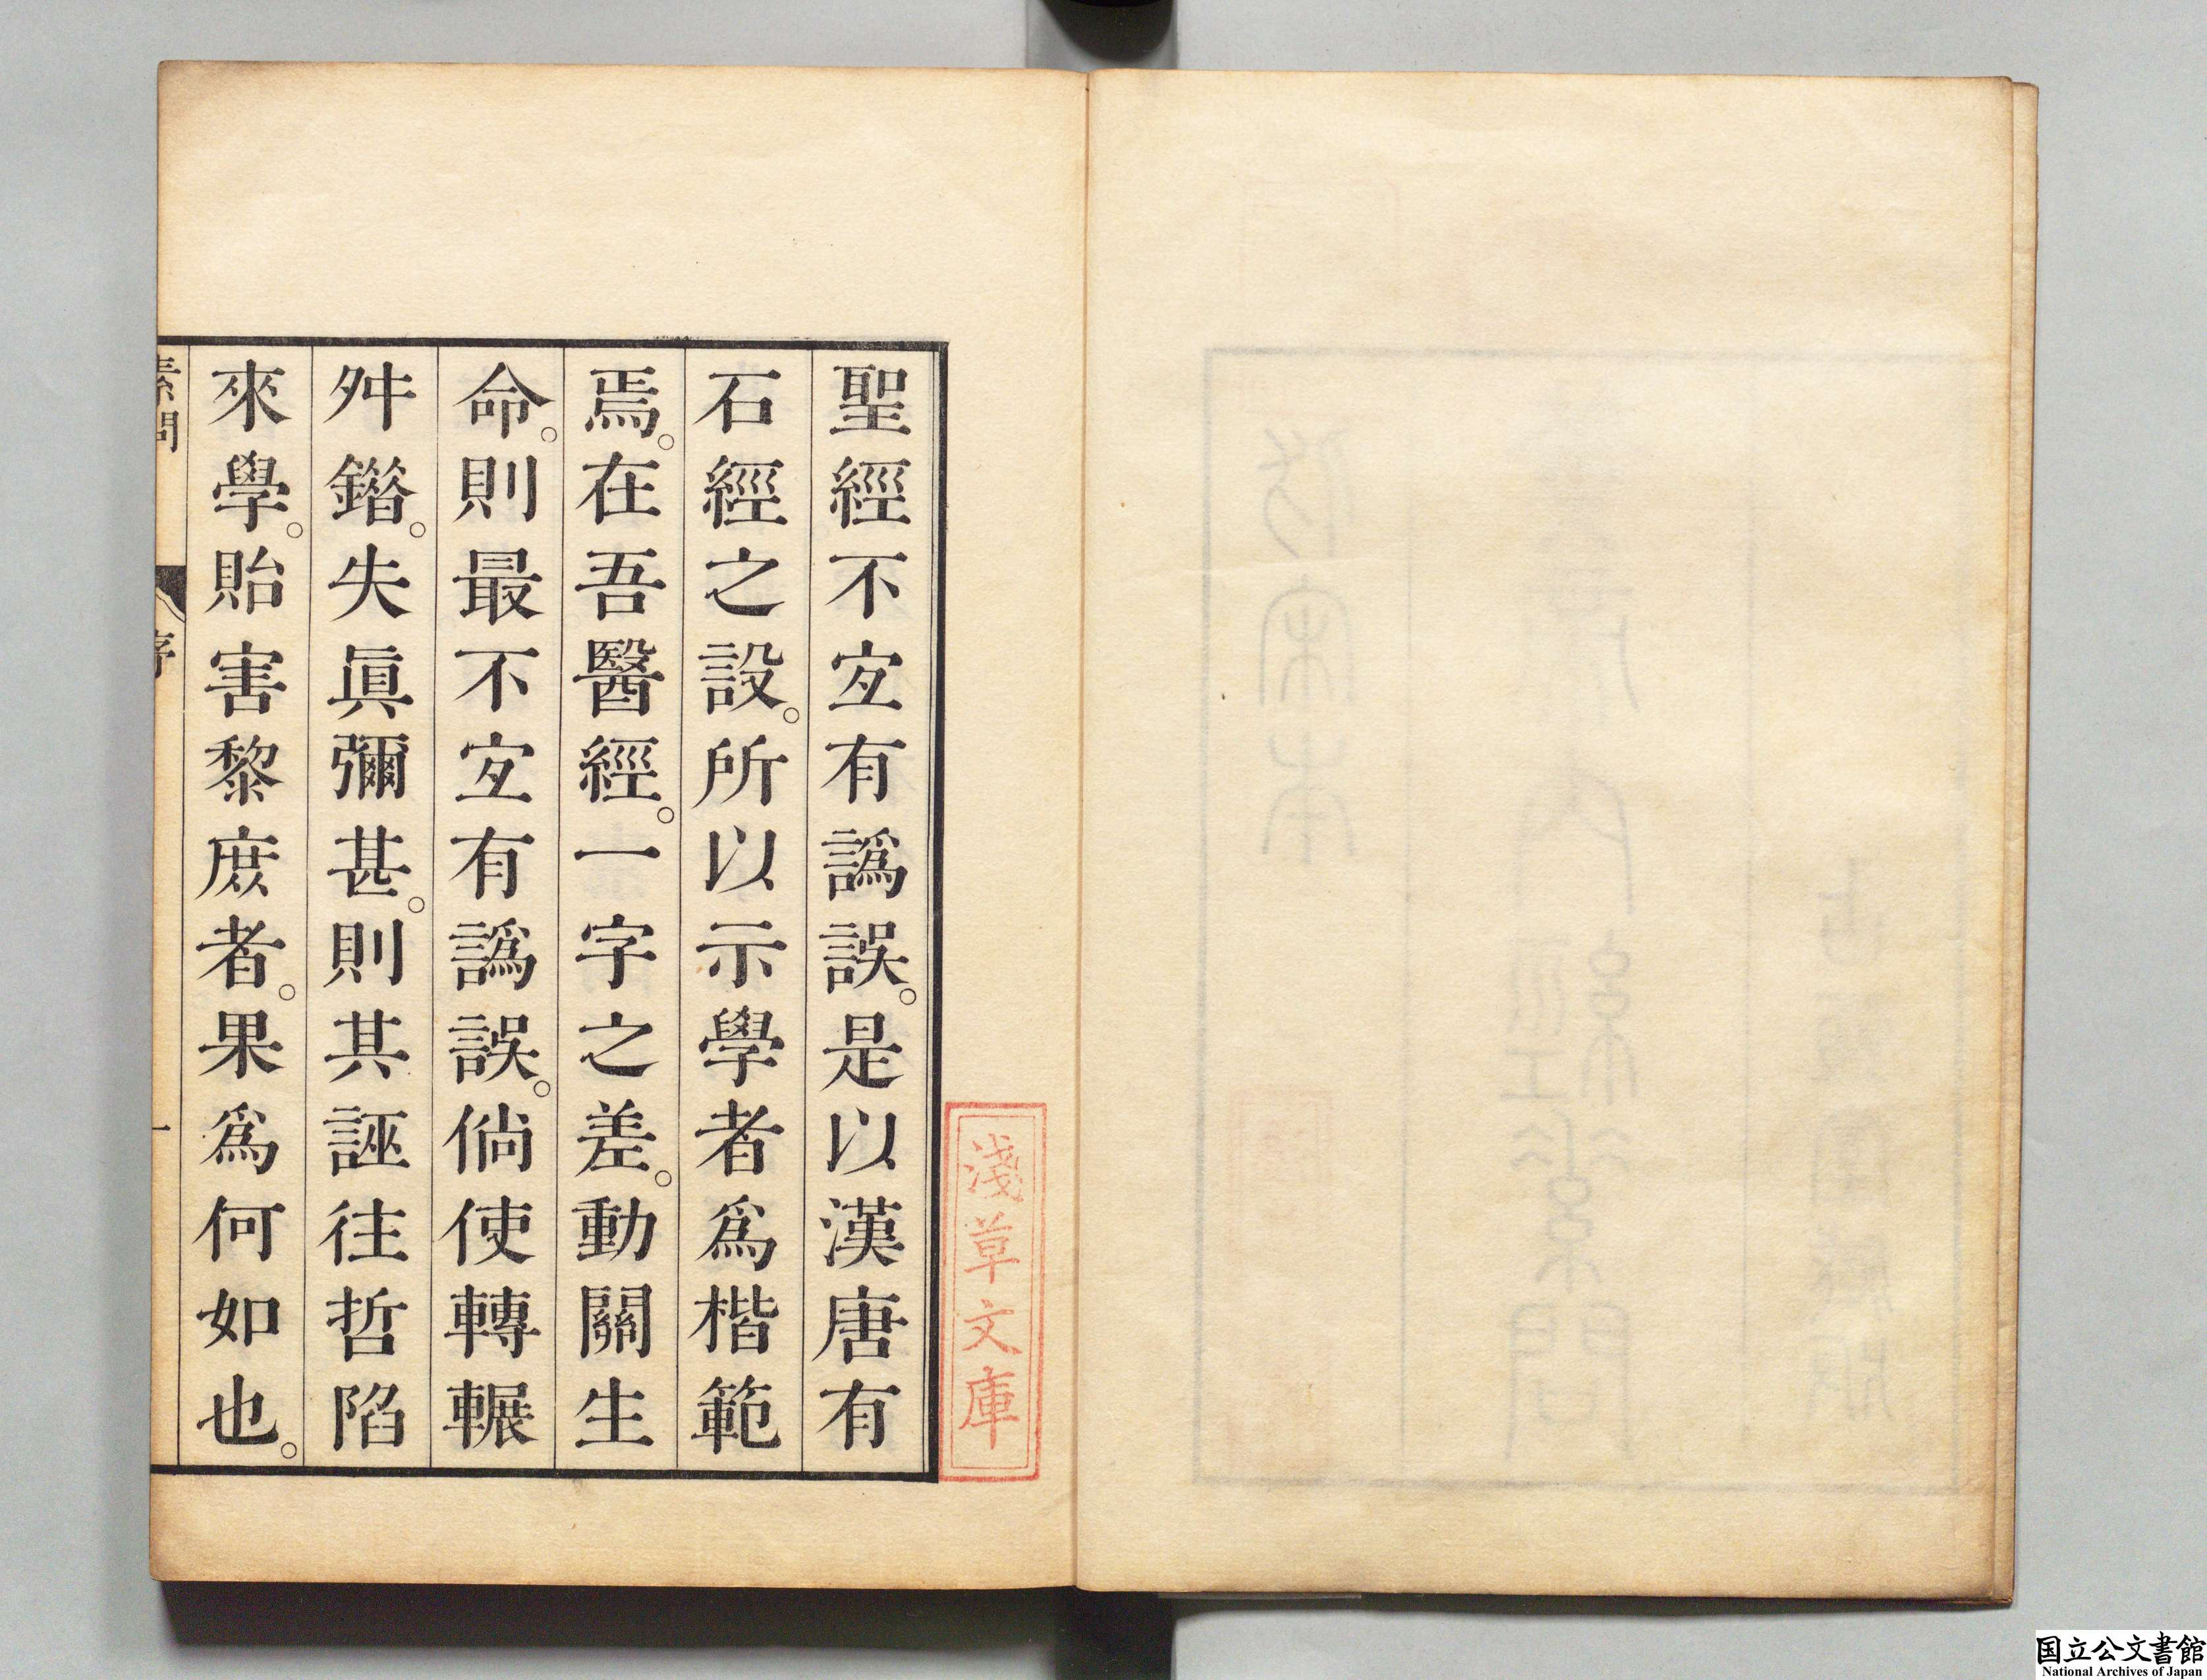 聖經不宐有譌誤。是以漢唐有
石經之設。所以示學者爲楷範
焉。在吾醫經。一字之差。動關生
命。則最不宐有譌誤。倘使轉輾
舛鐕。失眞彌甚。則其誣往哲陷
來學。貽害黎庶者。果爲何如也。
素問
序
一
淺草文庫
国立公文書館
National Archives of Japan